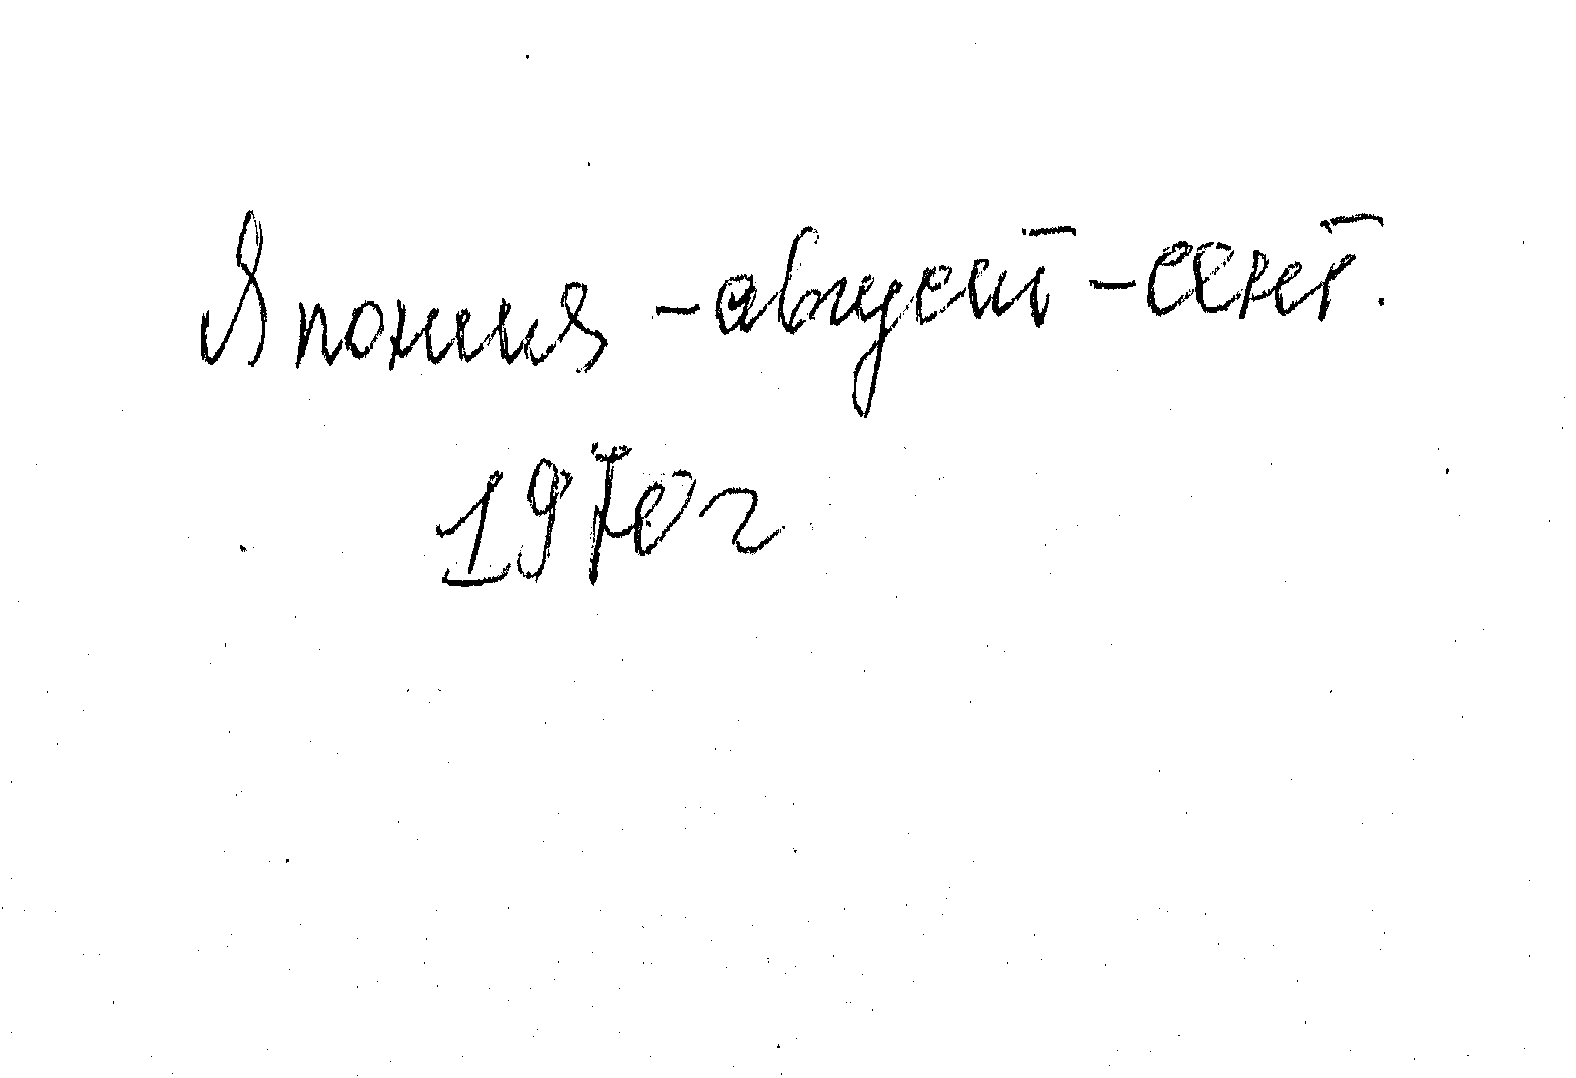 Япония - август - сент.
1970 г